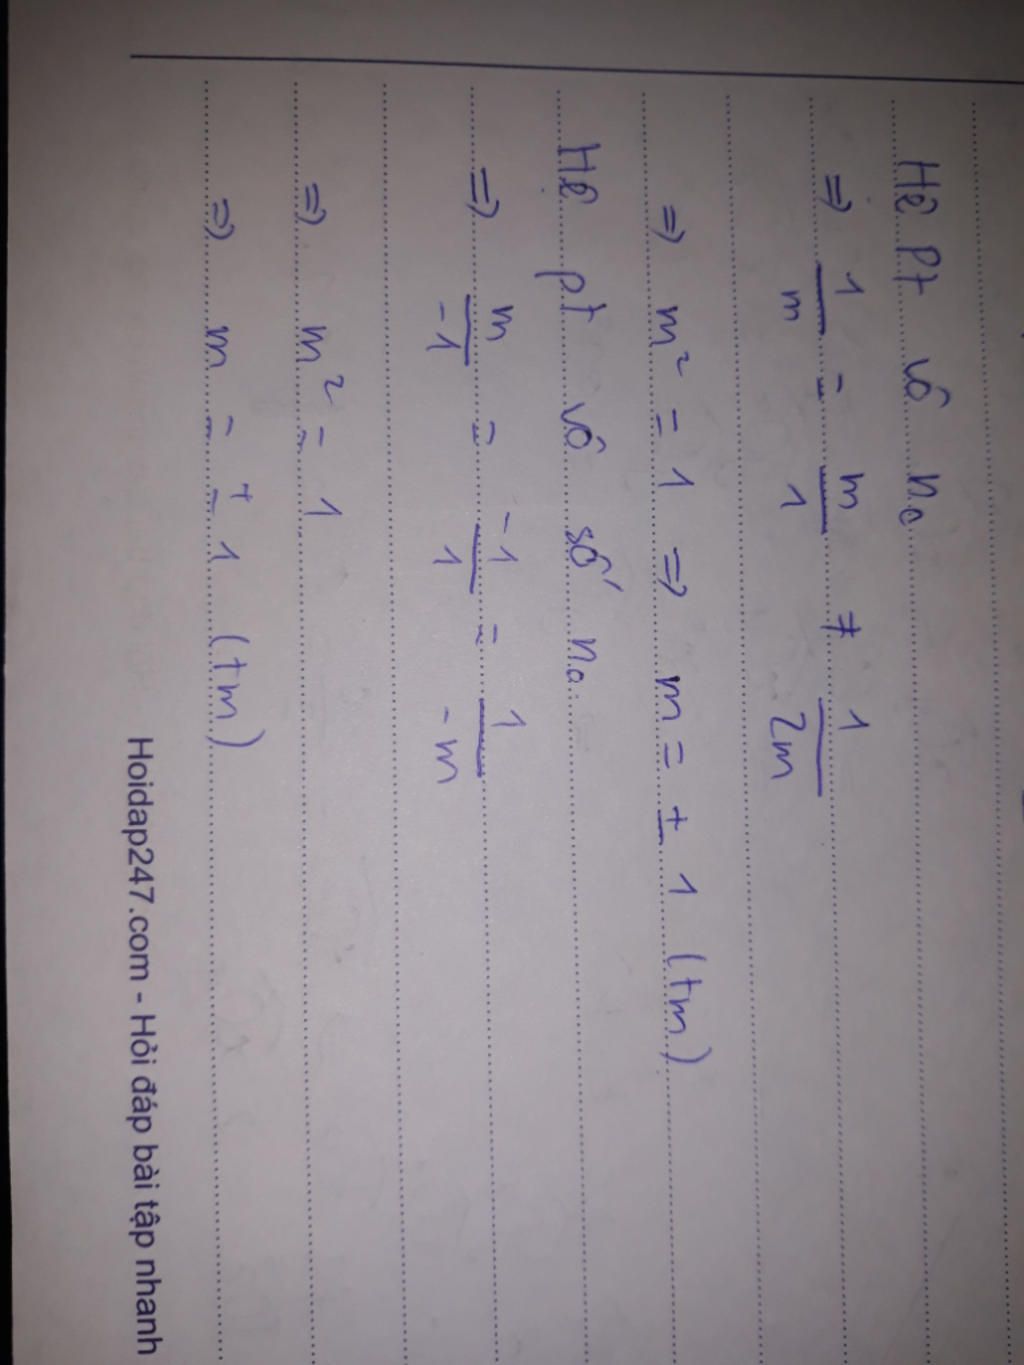 Hệ pt vô no
=> 1/m = m/1 ≠ 1/2m
=> m² = 1 => m = ± 1 (tm)
Hệ pt vô số no
=> m/-1 = -1/1 = 1/-m
=> m² = 1
=> m = ± 1 (tm)
Hoidap247.com - Hỏi đáp bài tập nhanh